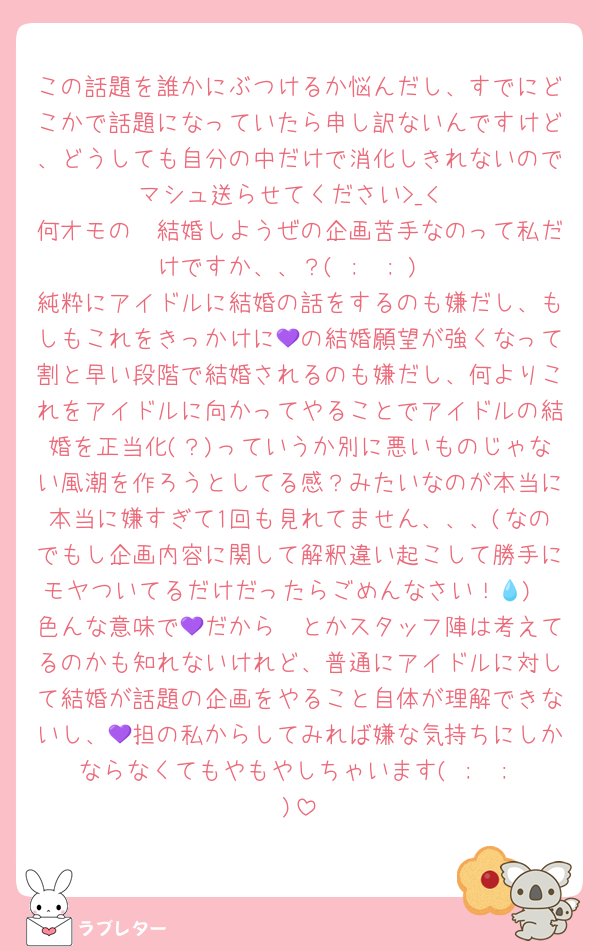 この話題を誰かにぶつけるか悩んだし、すでにど
こかで話題になっていたら申し訳ないんですけど
、どうしても自分の中だけで消化しきれないので
マシュ送らせてください>_<
何オモの　結婚しようぜの企画苦手なのって私だ
けですか、、？(　;　;　)
純粋にアイドルに結婚の話をするのも嫌だし、も
しもこれをきっかけに💜の結婚願望が強くなって
割と早い段階で結婚されるのも嫌だし、何よりこ
れをアイドルに向かってやることでアイドルの結
婚を正当化(？)っていうか別に悪いものじゃな
い風潮を作ろうとしてる感？みたいなのが本当に
本当に嫌すぎて1回も見れてません、、、(なの
でもし企画内容に関して解釈違い起こして勝手に
モヤついてるだけだったらごめんなさい！💧)
色んな意味で💜だから　とかスタッフ陣は考えて
るのかも知れないけれど、普通にアイドルに対し
て結婚が話題の企画をやること自体が理解できな
いし、💜担の私からしてみれば嫌な気持ちにしか
ならなくてもやもやしちゃいます(　;　;
)♡
ラブレター